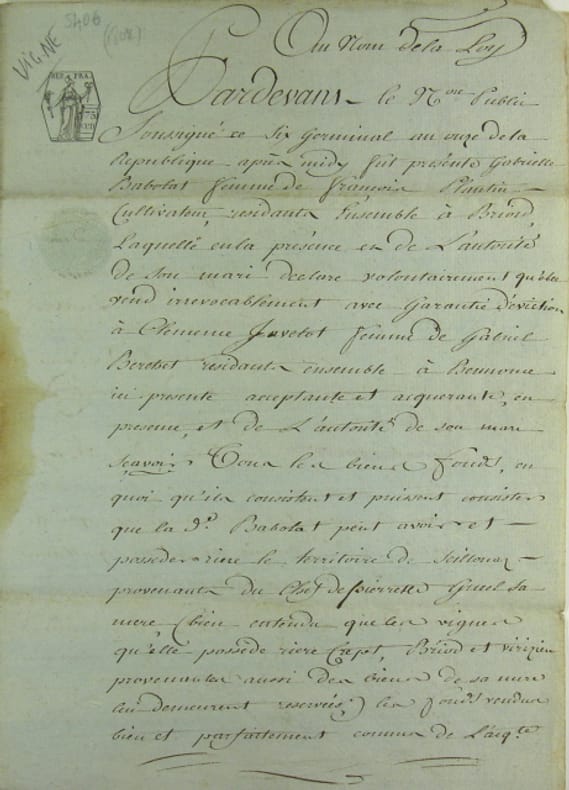 VIGNE
5406
(1808)
REP. FRA.
75
Au Nom de la Loy
Pardevans le No.re Public
Soussigné ce Six Germinal an onze de la
Republique après midy fut présente Gabrielle
Babolat femme de françois Plantin
Cultivateur, residants Ensemble à Briord,
Laquelle en la présence et de L'autorité
de son mari déclare volontairement qu'elle
vend irrevocablement avec Garantie d'éviction
à Clemence Juvelot femme de Gabriel
Berchet residants ensemble à Benonce
ici presente acceptante et acquerante, en
presence, et de L'autorité de son mari
Sçavoir, Tous les biens fonds, en
quoi qu'ils consistent et puissent consister
que la d.e Babolat peut avoir et
posseder riere le territoire de Seillonas
provenants du Chef de pierrette Guel sa
mere (bien entendu que les vignes
qu'elle possède riere Crept, Briord et
provenantes aussi des biens de sa mere
lui demeurent reservées;) les fonds vendus
bien et parfaitement connus de L'acq.te